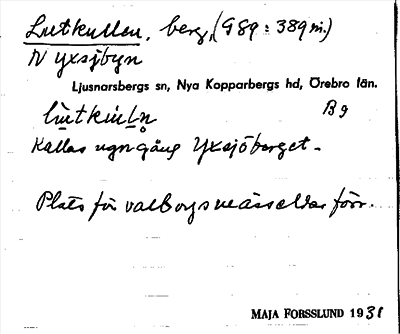 Lutkullen, berg, (G89 : 389 m.)
N Yxsjbyn
Ljusnarsbergs sn, Nya Kopparbergs hd, Örebro län.
Bg
Kallas ngn gång Yxsjöberget.
Plats för valborgsmässeldar förr.
MAJA FORSSLUND 1931